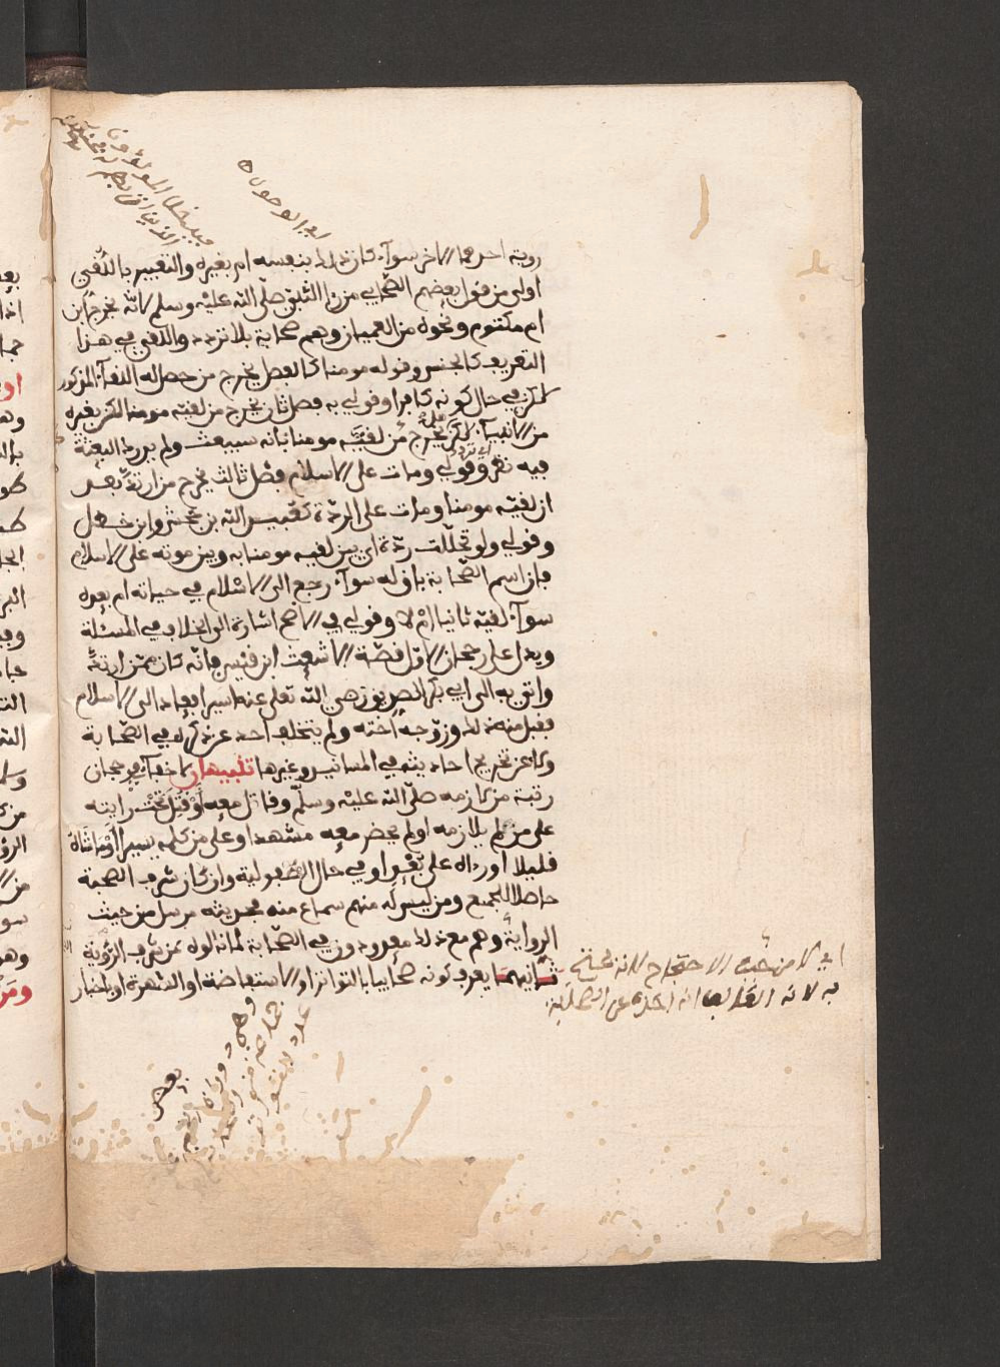 روية احدهما الاخر سوآء كان ذلك بنفسه ام بغيره والتعبير باللقي
اولى من قول بعضهم الصحابي من رءا النبي صلى الله عليه وسلم لانه يخرج ابن
ام مكتوم ونحوه من العميان وهم صحابة بلا تردد واللقي في هذا
التعريف كالجنس وقوله مومنا كالفصل يخرج من حصل له اللقآء المذكور
لكن في حال كونه كافرا وقولي به فصل ثان يخرج من لقيه مومنا لكن بغيره
من الانبيآء لكن يخرج من لقيه مومنا بانه سيبعث ولم يدرك البعثة
فيه نظر وقولي ومات على الاسلام فصل ثالث يخرج من ارتد بعد
ان لقيه مومنا ومات على الردة كعبيد الله بن جحش وابن خطل
وقولي ولو تخللت ردة اي بين لقيه مومنا به وبين موته على الاسلام
فان اسم الصحابة باق له سوآء رجع الى الاسلام في حياته ام بعده
سوآء لقيه ثانيا ام لا وقولي في الاصح اشارة الى الخلاف في المسئلة
ويدل على رجحان الاول قصة الاشعث ابن قيس فانه كان ممن ارتد
واتي به الى ابي بكر الصديق رضي الله تعلى عنه اسيرا فعاد الى الاسلام
فقبل منه ذلك وزوجه اخته ولم يتخلف احد عن ذكره في الصحابة
ولا عن تخريج احاديثه في المسانيد وغيرها تنبيهان لا خفآء في رجحان
رتبة من لازمه صلى الله عليه وسلم وقاتل معه او قتل تحت رايته
على من لم يلازمه او لم يحضر معه مشهدا وعلى من كلمه يسيرا او ماشاه
قليلا او رءاه على بعد او في حال الطفولية وان كان شرف الصحبة
حاصلا للجميع ومن ليس له منهم سماع منه فحديثه مرسل من حيث
الرواية وهم مع ذلك معدودون في الصحابة لما نالوه من شرف الرؤية
ثانيهما يعرف كونه صحابيا بالتواتر او الاستفاضة او الشهرة او باخبار
اي لا من حيث الاحتجاج لانه محتج
به لانه الغالب انه اخذه عن الصحابة
بعض